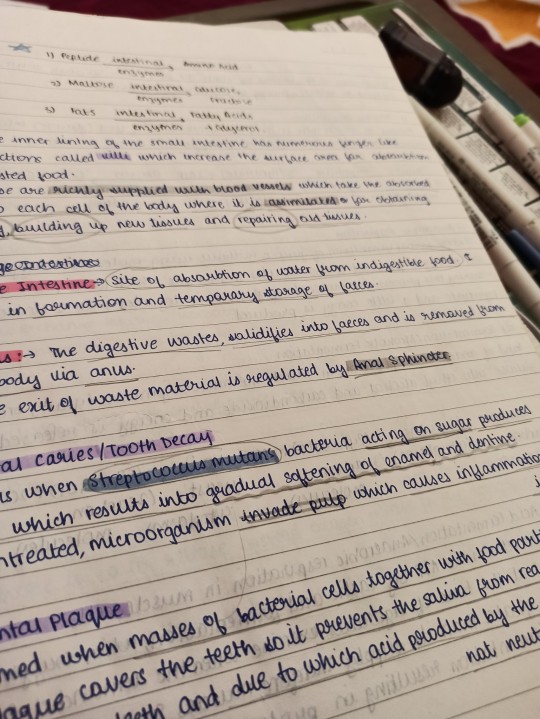 1) Peptide intestinal enzymes Amino Acid
2) Maltose intestinal enzymes Glucose, Fructose
3) Fats intestinal enzymes Fatty Acids + Glycerol
inner lining of the small intestine has numerous finger like
ctions called villi which increase the surface area for absorbtion
sted food.
se are richly supplied with blood vessels which take the absorbed
each cell of the body where it is assimilated for obtaining
building up new tissues and repairing old tissues.
ge Intestine
e Intestine → site of absorbtion of water from indigestible food &
in formation and temporary storage of faeces.
us :→ The digestive wastes, solidifies into faeces and is removed from
body via anus.
e exit of waste material is regulated by Anal Sphincter
al caries/Tooth Decay
s when Streptococcus mutans bacteria acting on sugar produces
which results into gradual softening of enamel and dentine.
ntreated, microorganism invade pulp which causes inflammation
ntal Plaque
med when masses of bacterial cells together with food part
laque covers the teeth so it prevents the saliva from rea
teeth and due to which acid produced by the
not neut